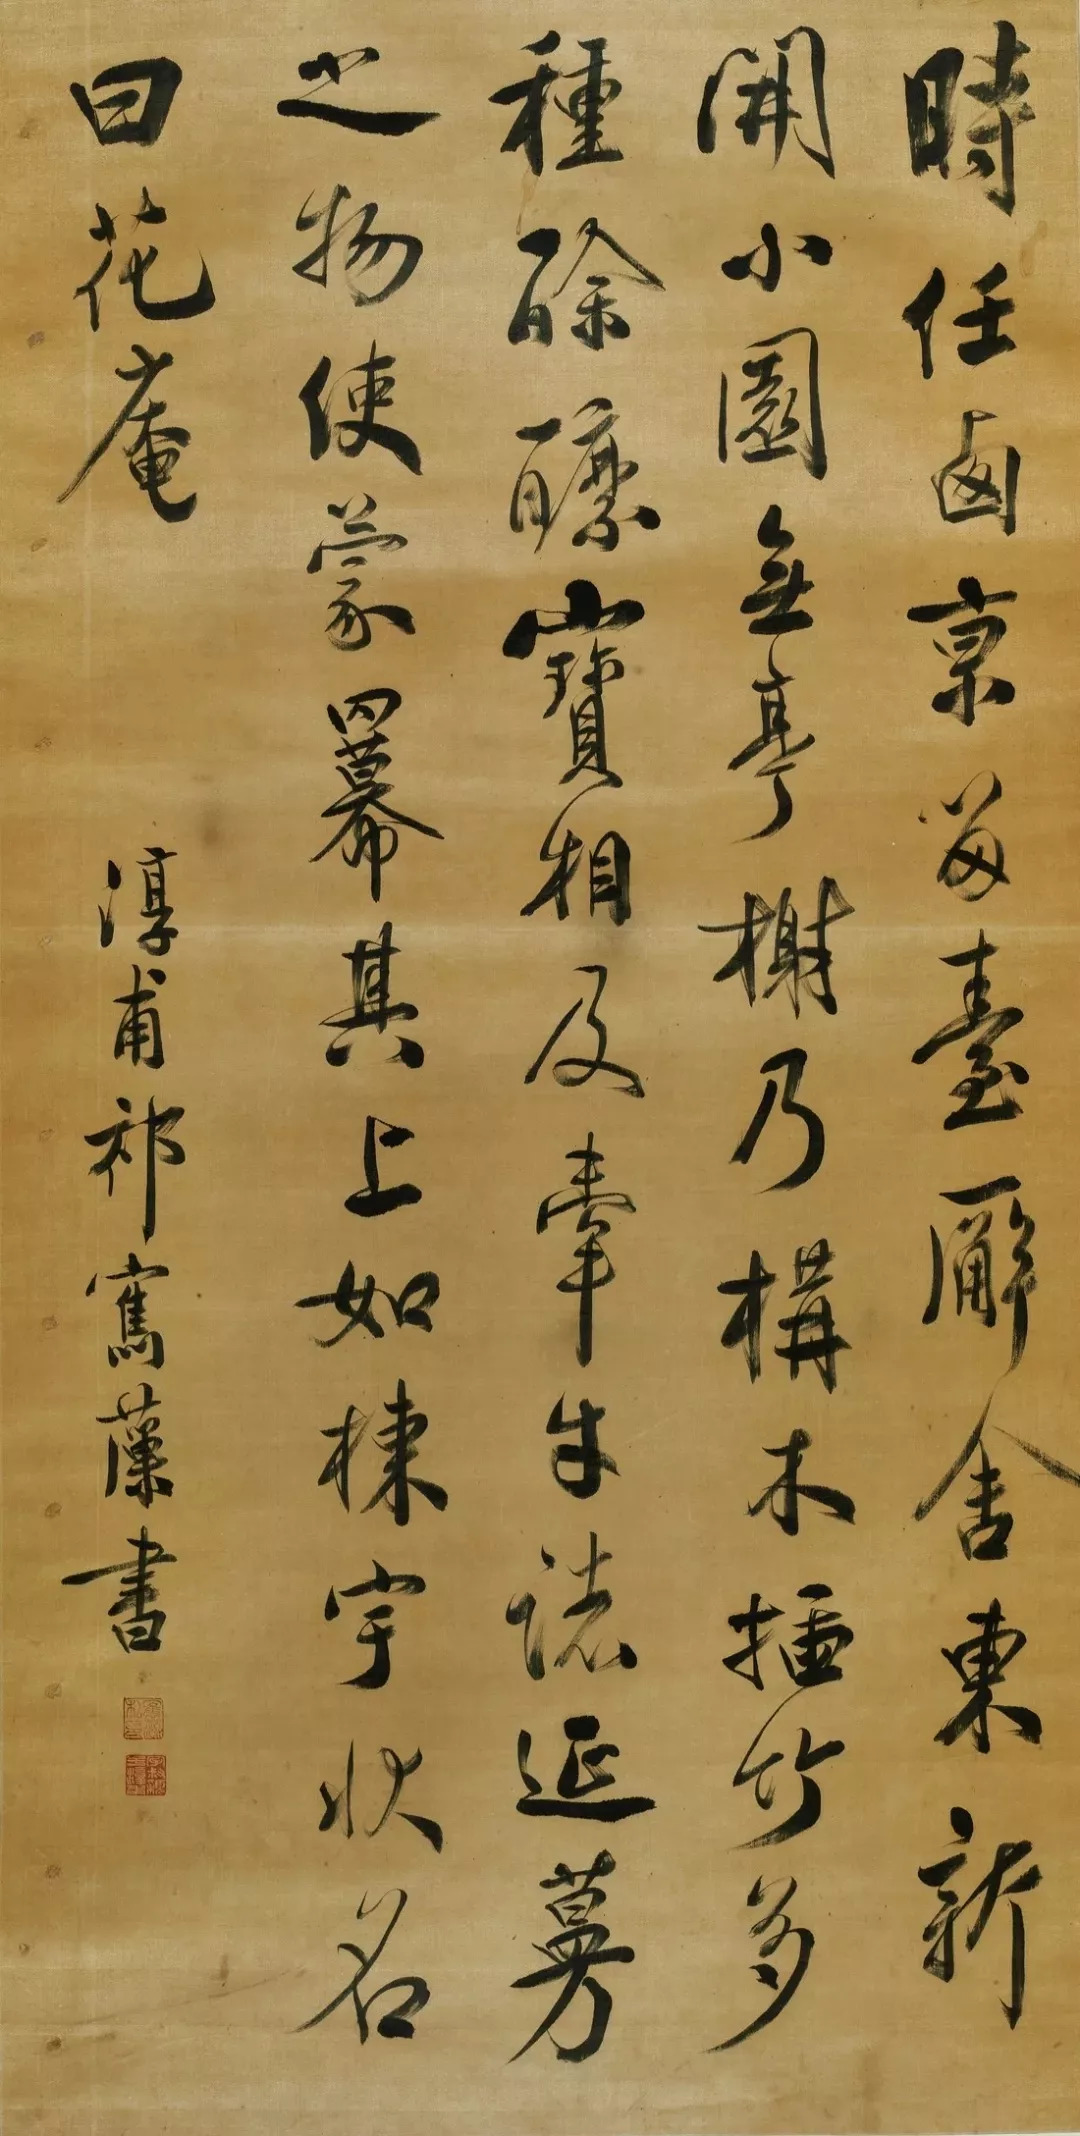 時任西京留臺廨舍東新
開小園無亭榭乃構木插竹多
種酴醿寶相及牽牛諸延蔓
之物使蒙冪其上如棟宇狀名
曰花庵
淳甫祁寯藻書